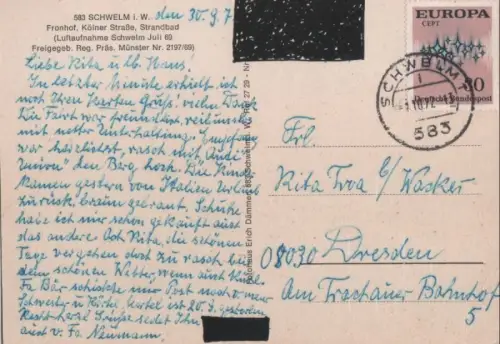 583 SCHWELM i. W.
Fronhof, Kölner Straße, Strandbad
(Luftaufnahme Schwelm Juli 69
Freigegeb. Reg. Präs. Münster Nr. 2197/69)
den 30.9.7
Liebe Rita u. lb. Hans!
In letzter Minute erhielt ich
noch Ihren Karten Gruß. vielen Dank
Die Fahrt war
mit netter Unterhaltung. Empfang
war herzlichst, rasch mit "Audi
den Berg hoch. Die Kinder
kamen gestern von Italien Urlaub
zurück, braun gebrannt. Schuhe
habe ich mir schon gekauft auch
das andere. Ach Rita, die schönen
Tage vergehen doch zu rasch bei
dem schönen Wetter, wenn auch kühl.
Fa Bär schickte mir Post nach v. meiner
Schwester u.
Recht herzl. Grüße sendet Ihnen
auch v. Fa. Neumann.
EUROPA
CEPT
30
Deutsche Bundespost
SCHWELM 1
583
Frl.
Rita Troa b/Wasker
08030 Dresden
Am Trachauer Bahnhof
5